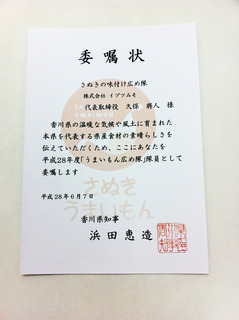 委嘱状
さぬきの味付け広め隊
株式会社 イヅツみそ
代表取締役 久保 将人 様
香川県の温暖な気候や風土に育まれた
本県を代表する県産食材の素晴らしさを
伝えていただくため、ここにあなたを
平成28年度「うまいもん広め隊」隊員として
委嘱します
平成28年6月7日
香川県知事
浜田恵造
さぬき
うまいもん